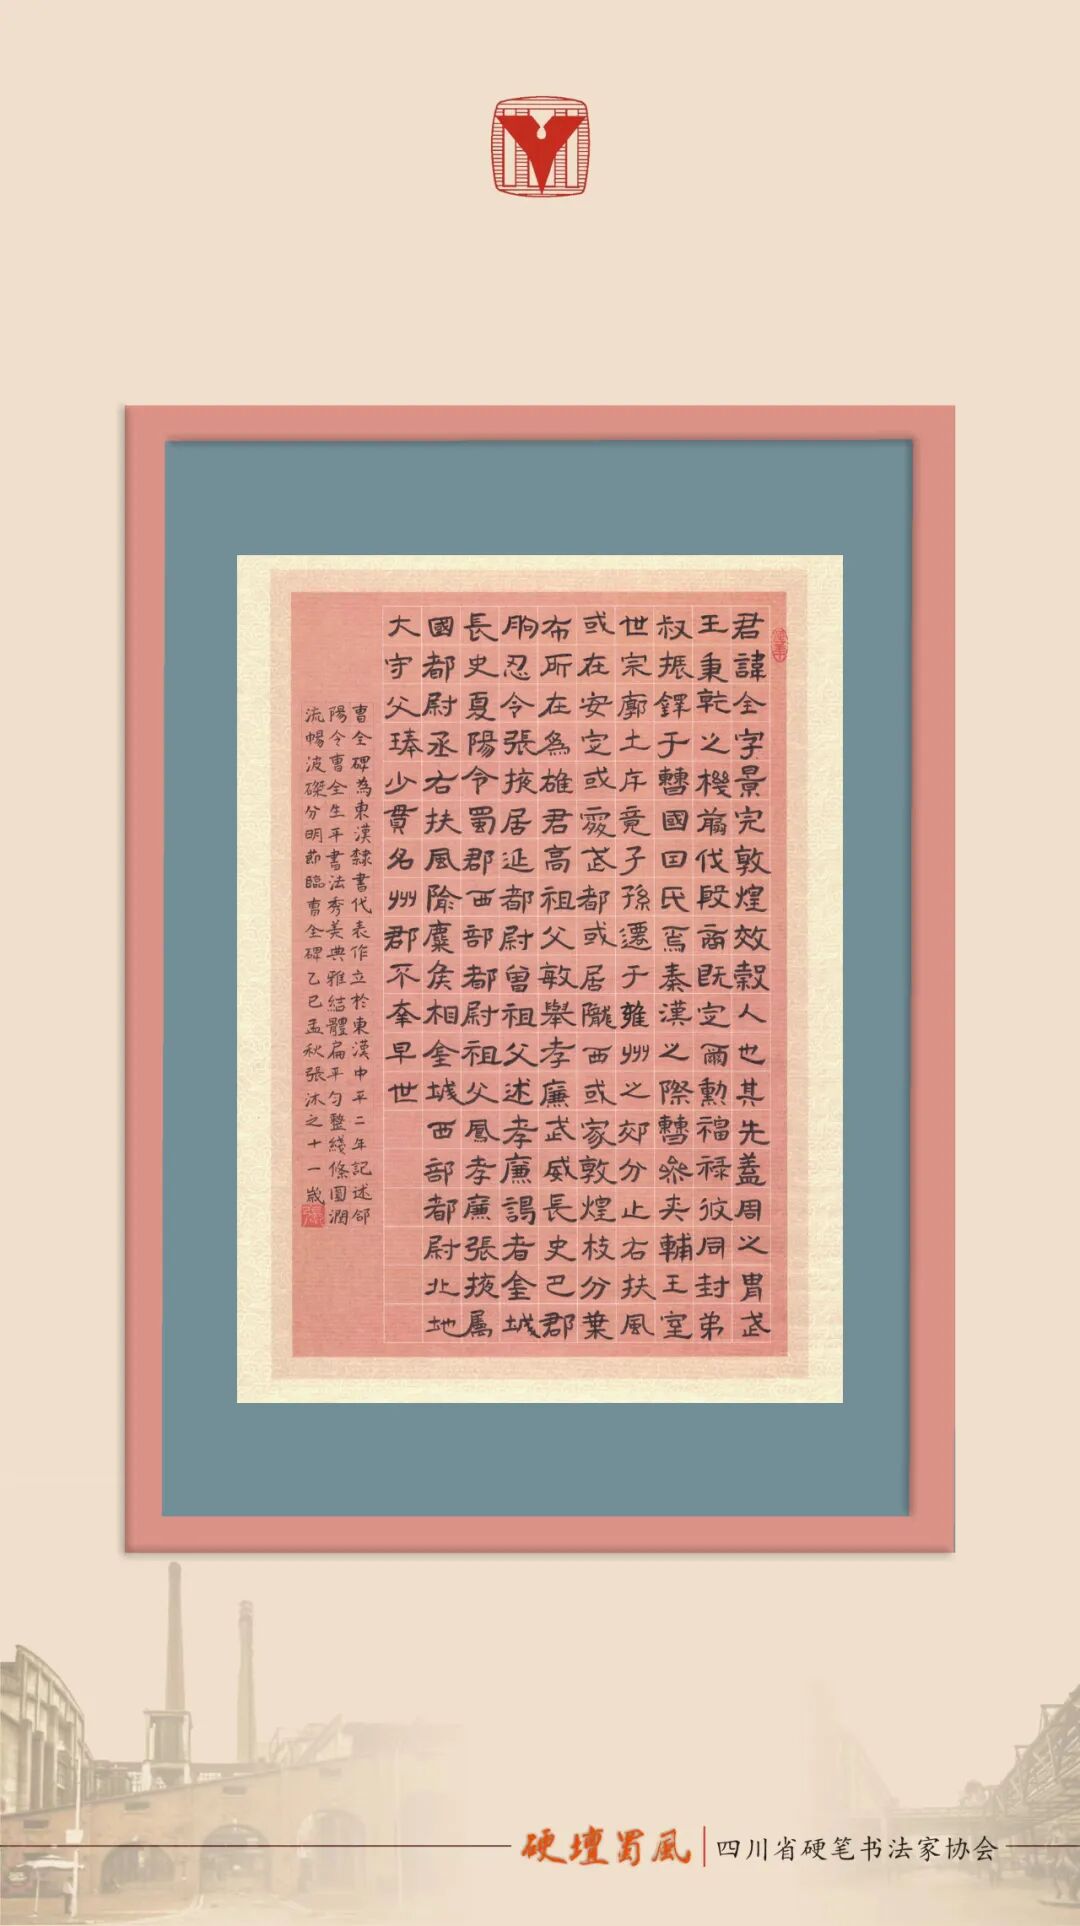 君諱全字景完敦煌效穀人也其先蓋周之胄武
王秉乾之機翦伐殷商既定爾勳福祿攸同封弟
叔振鐸于曹國因氏焉秦漢之際曹參夾輔王室
世宗廓土斥竟子孫遷于雍州之郊分止右扶風
或在安定或處武都或居隴西或家敦煌枝分葉
布所在為雄君高祖父敏舉孝廉武威長史巴郡
朐忍令張掖居延都尉曾祖父述孝廉謁者金城
長史夏陽令蜀郡西部都尉祖父鳳孝廉張掖屬
國都尉丞右扶風隃麋侯相金城西部都尉北地
大守父琫少貫名州郡不幸早世
曹全碑為東漢隸書代表作立於東漢中平二年記述郃
陽令曹全生平書法秀美典雅結體扁平勻整綫條圓潤
流暢波磔分明節臨曹全碑乙巳孟秋張沐之十一歲
硬壇蜀風
四川省硬笔书法家协会